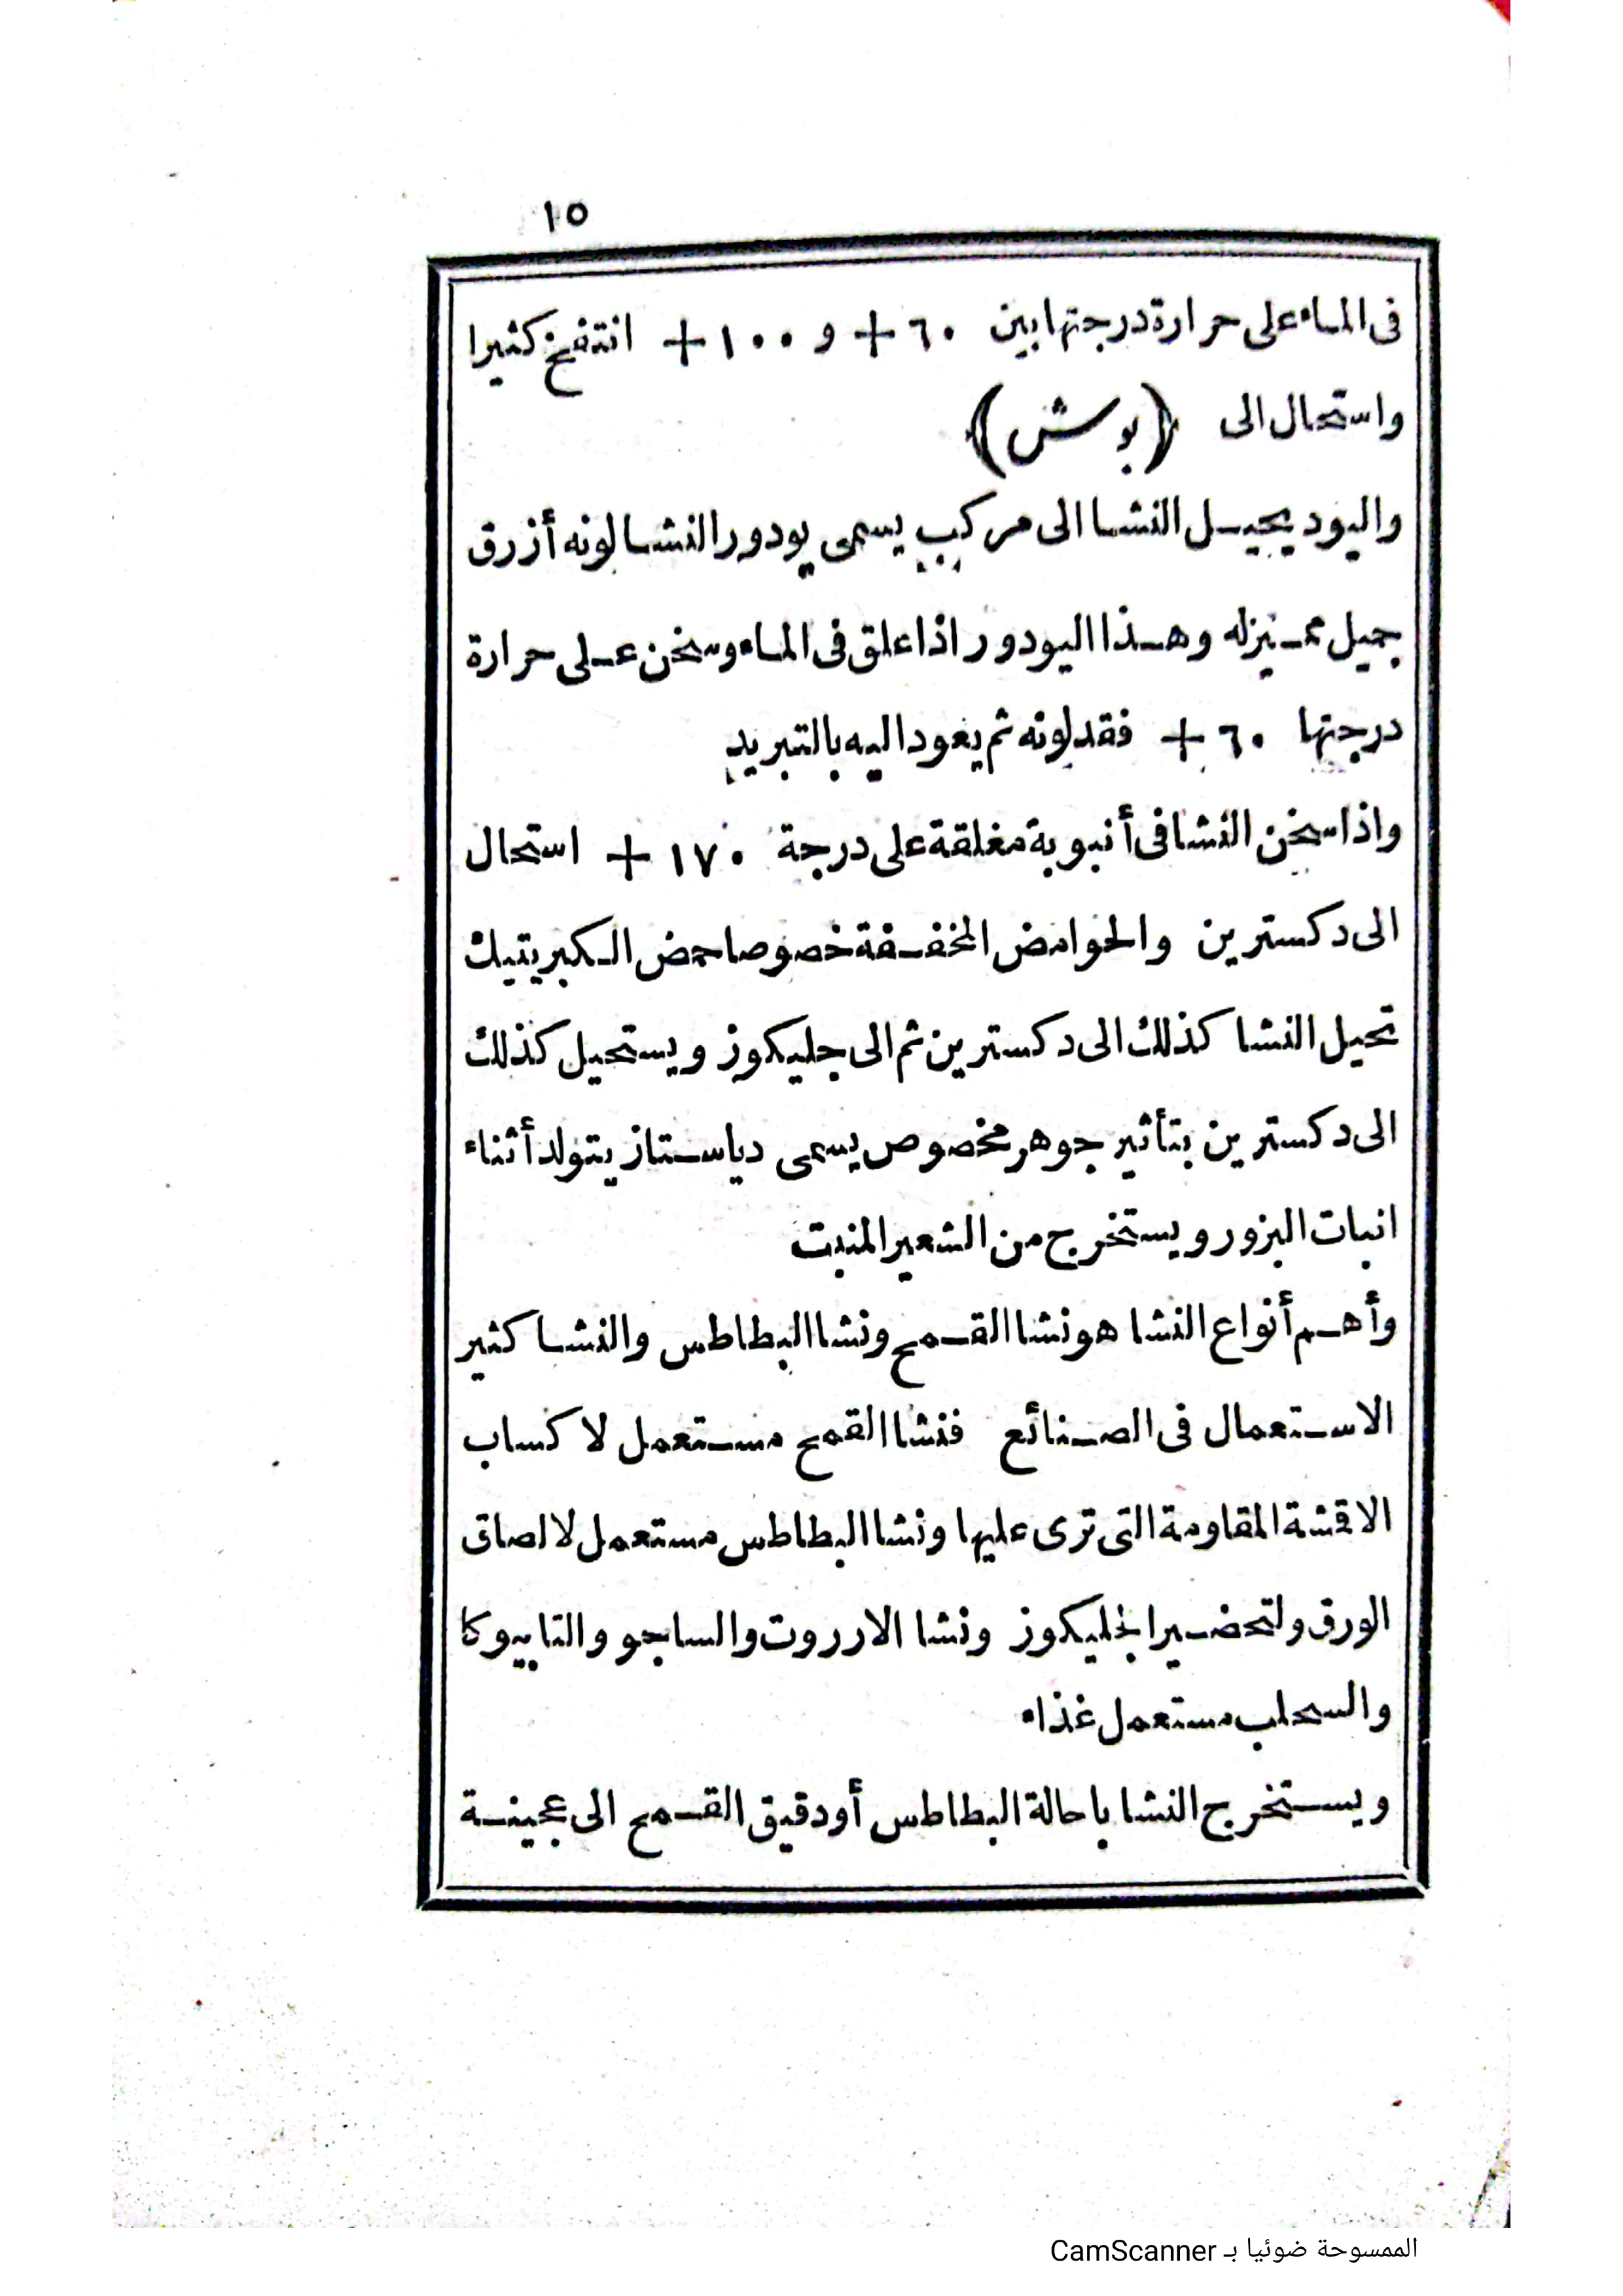 ١٥
فى الماء على حرارة درجتها بين ٦٠ + و ١٠٠ + انتفخ كثيرا
واستحال الى (بوش)
واليود يحيل النشا الى مركب يسمى يودور النشا لونه أزرق
جميل مميز له وهذا اليودور اذا علق فى الماء وسخن على حرارة
درجتها ٦٠ + فقد لونه ثم يعود اليه بالتبريد
واذا سخن النشا فى أنبوبة مغلقة على درجة ١٧٠ + استحال
الى دكسترين والحوامض المخففة خصوصا حمض الكبريتيك
تحيل النشا كذلك الى دكسترين ثم الى جليكوز ويستحيل كذلك
الى دكسترين بتأثير جوهر مخصوص يسمى دياستاز يتولد أثناء
انبات البزور ويستخرج من الشعير المنبت
وأهم أنواع النشا هو نشا القمح ونشا البطاطس والنشا كثير
الاستعمال فى الصنائع فنشا القمح مستعمل لاكساب
الاقشة المقاومة التى ترى عليها ونشا البطاطس مستعمل لالصاق
الورق ولتحضير الجليكوز ونشا الارروت والساجو والتابيوكا
والسحلب مستعمل غذاء
ويستخرج النشا باحالة البطاطس أو دقيق القمح الى عجينة
الممسوحة ضوئيا بـ CamScanner